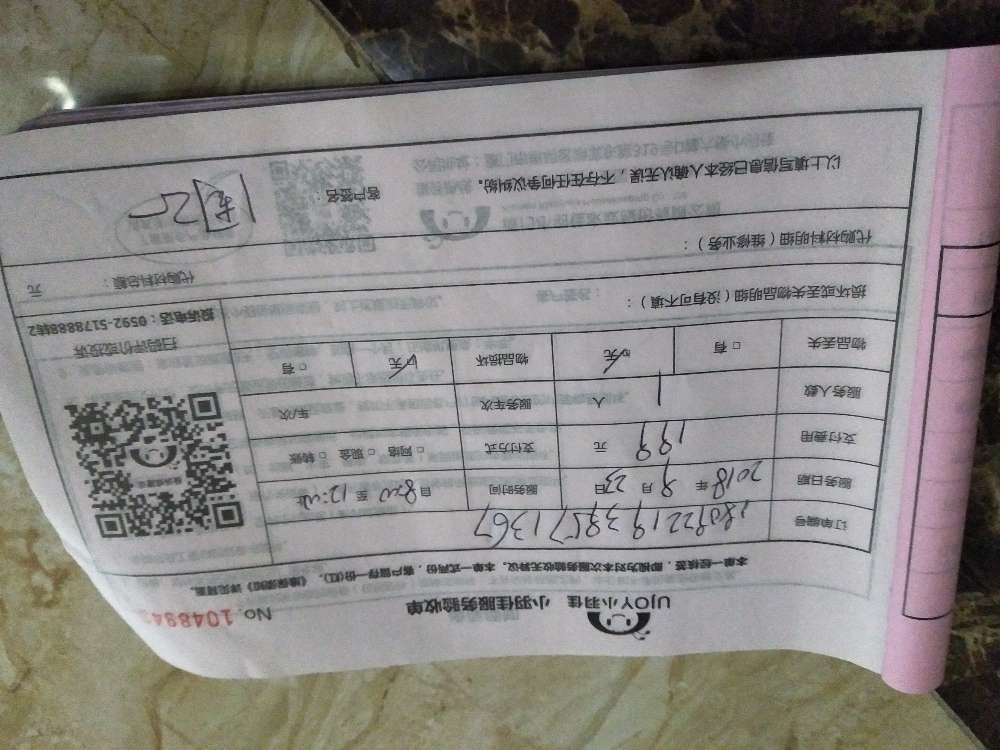 UJOY小羽佳 小羽佳服务验收单
No.104894
本单一经核签,即视为对本次服务验收无异议。本单一式两份,客户留存一份(红),《维保须知》详见背面。
订单编号 1809221938571367
服务日期 2018 年 9 月 23 日 服务时间 自 8:20 至 12:
支付费用 199 元 支付方式 □ 网络 □ 现金 □ 转账
服务人数 1 人 服务车次 车/次
物品丢失 □ 有 ☑ 无 物品损坏 ☑ 无 □ 有
扫码评价或投诉
投诉电话:0592-5178888转2
损坏或丢失物品明细(没有可不填):
代购材料明细(维修业务): 代购材料总额: 元
以上填写信息已经本人确认无误,不存在任何争议纠纷。 客户签名: